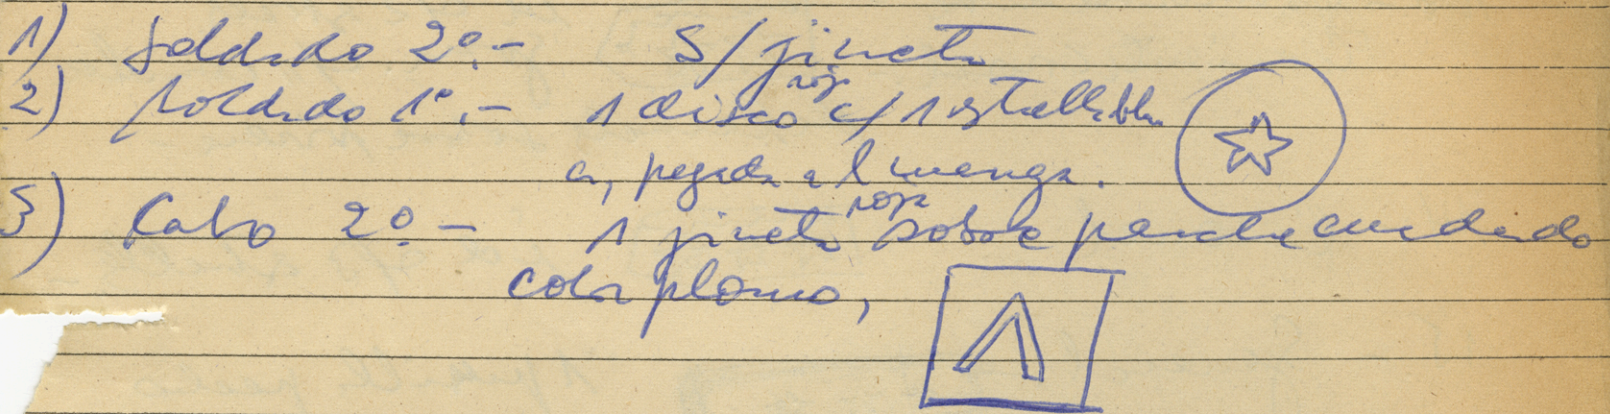 1) Soldado 2º.- S/jineta
2) Soldado 1º.- 1 disco rojo c/1 estrella blan
ca, pegada a l manga.
3) Cabo 2º.- 1 jineta roja sobre parche cuadrado
color plomo,